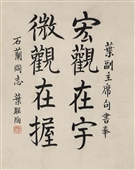 宏觀在宇
微觀在握
葉副主席句書奉
石蘭同志 葉聖陶